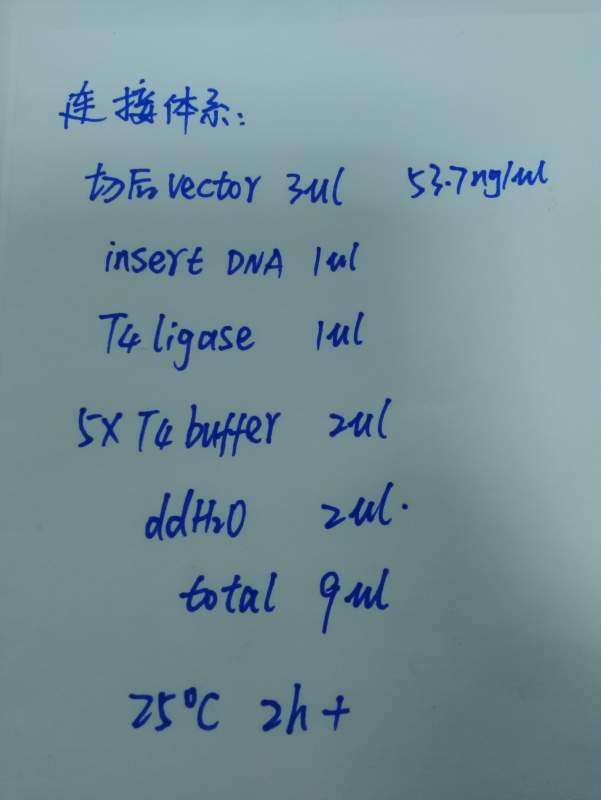 连接体系:
切后vector 3ul 53.7ng/ul
insert DNA 1ul
T4 ligase 1ul
5X T4 buffer 2ul
ddH2O 2ul.
total 9ul
25°C 2h+